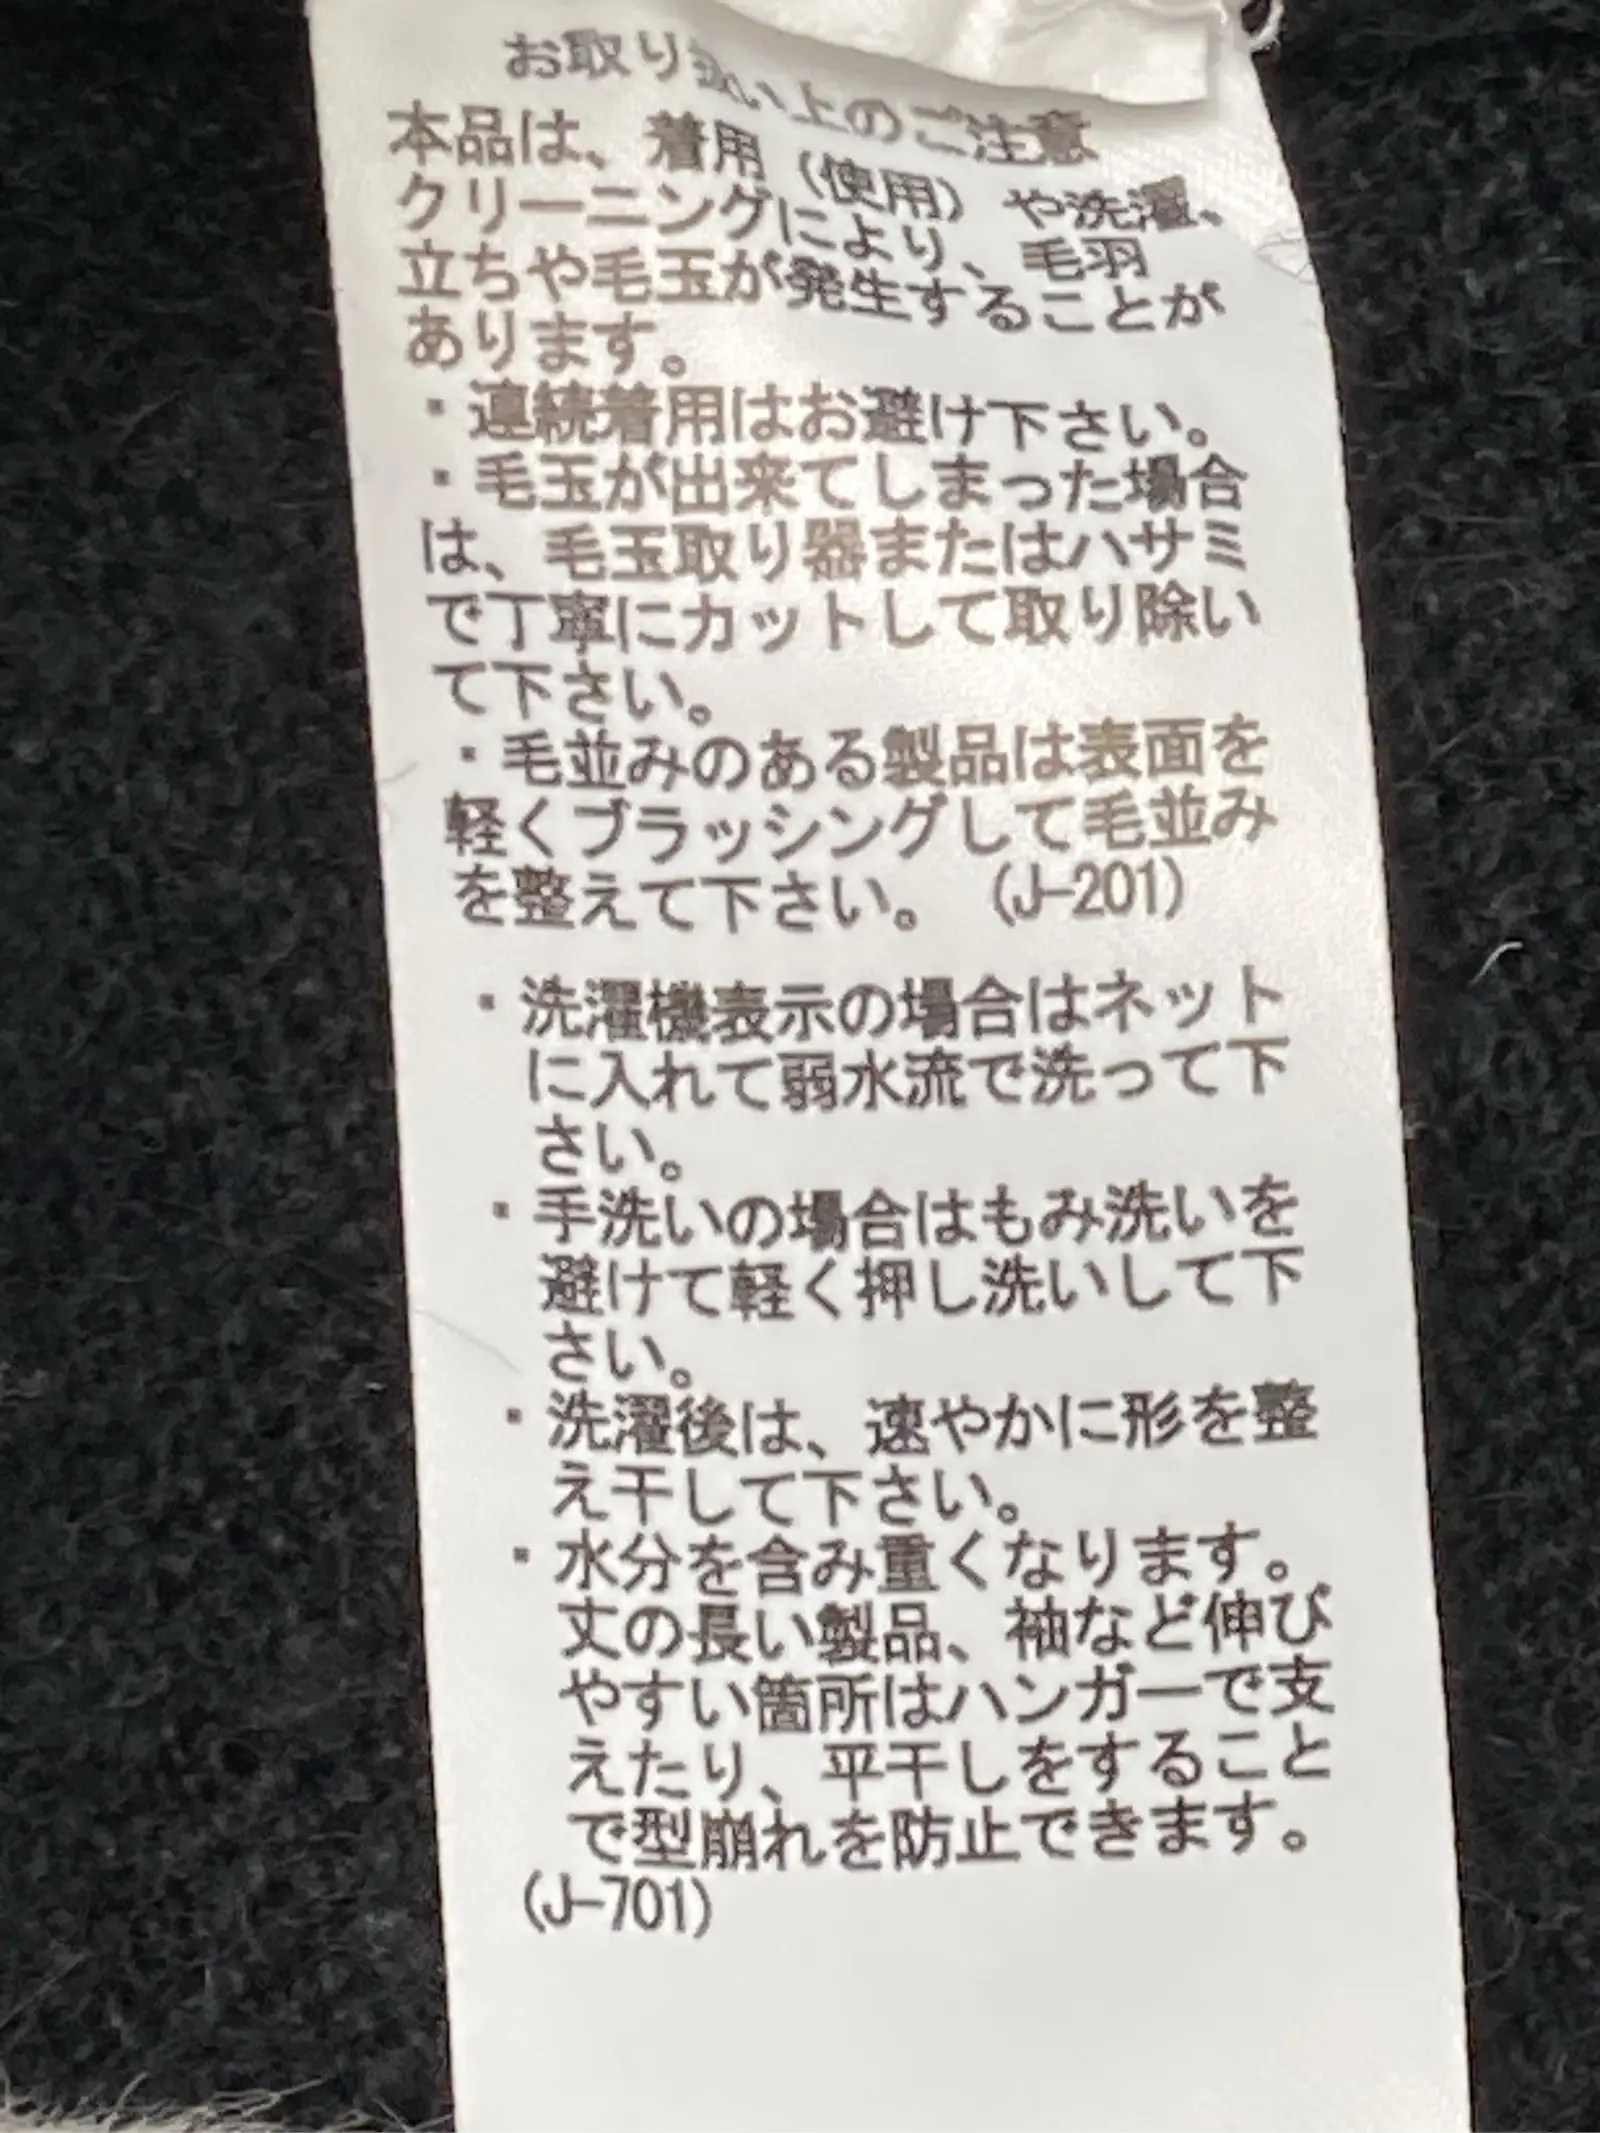 お取り扱い上のご注意
本品は、着用（使用）や洗濯、
クリーニングにより、毛羽
立ちや毛玉が発生することが
あります。
・連続着用はお避け下さい。
・毛玉が出来てしまった場合
は、毛玉取り器またはハサミ
で丁寧にカットして取り除い
て下さい。
・毛並みのある製品は表面を
軽くブラッシングして毛並み
を整えて下さい。（J-201）
・洗濯機表示の場合はネット
に入れて弱水流で洗って下
さい。
・手洗いの場合はもみ洗いを
避けて軽く押し洗いして下
さい。
・洗濯後は、速やかに形を整
え干して下さい。
・水分を含み重くなります。
丈の長い製品、袖など伸び
やすい箇所はハンガーで支
えたり、平干しをすること
で型崩れを防止できます。
（J-701）